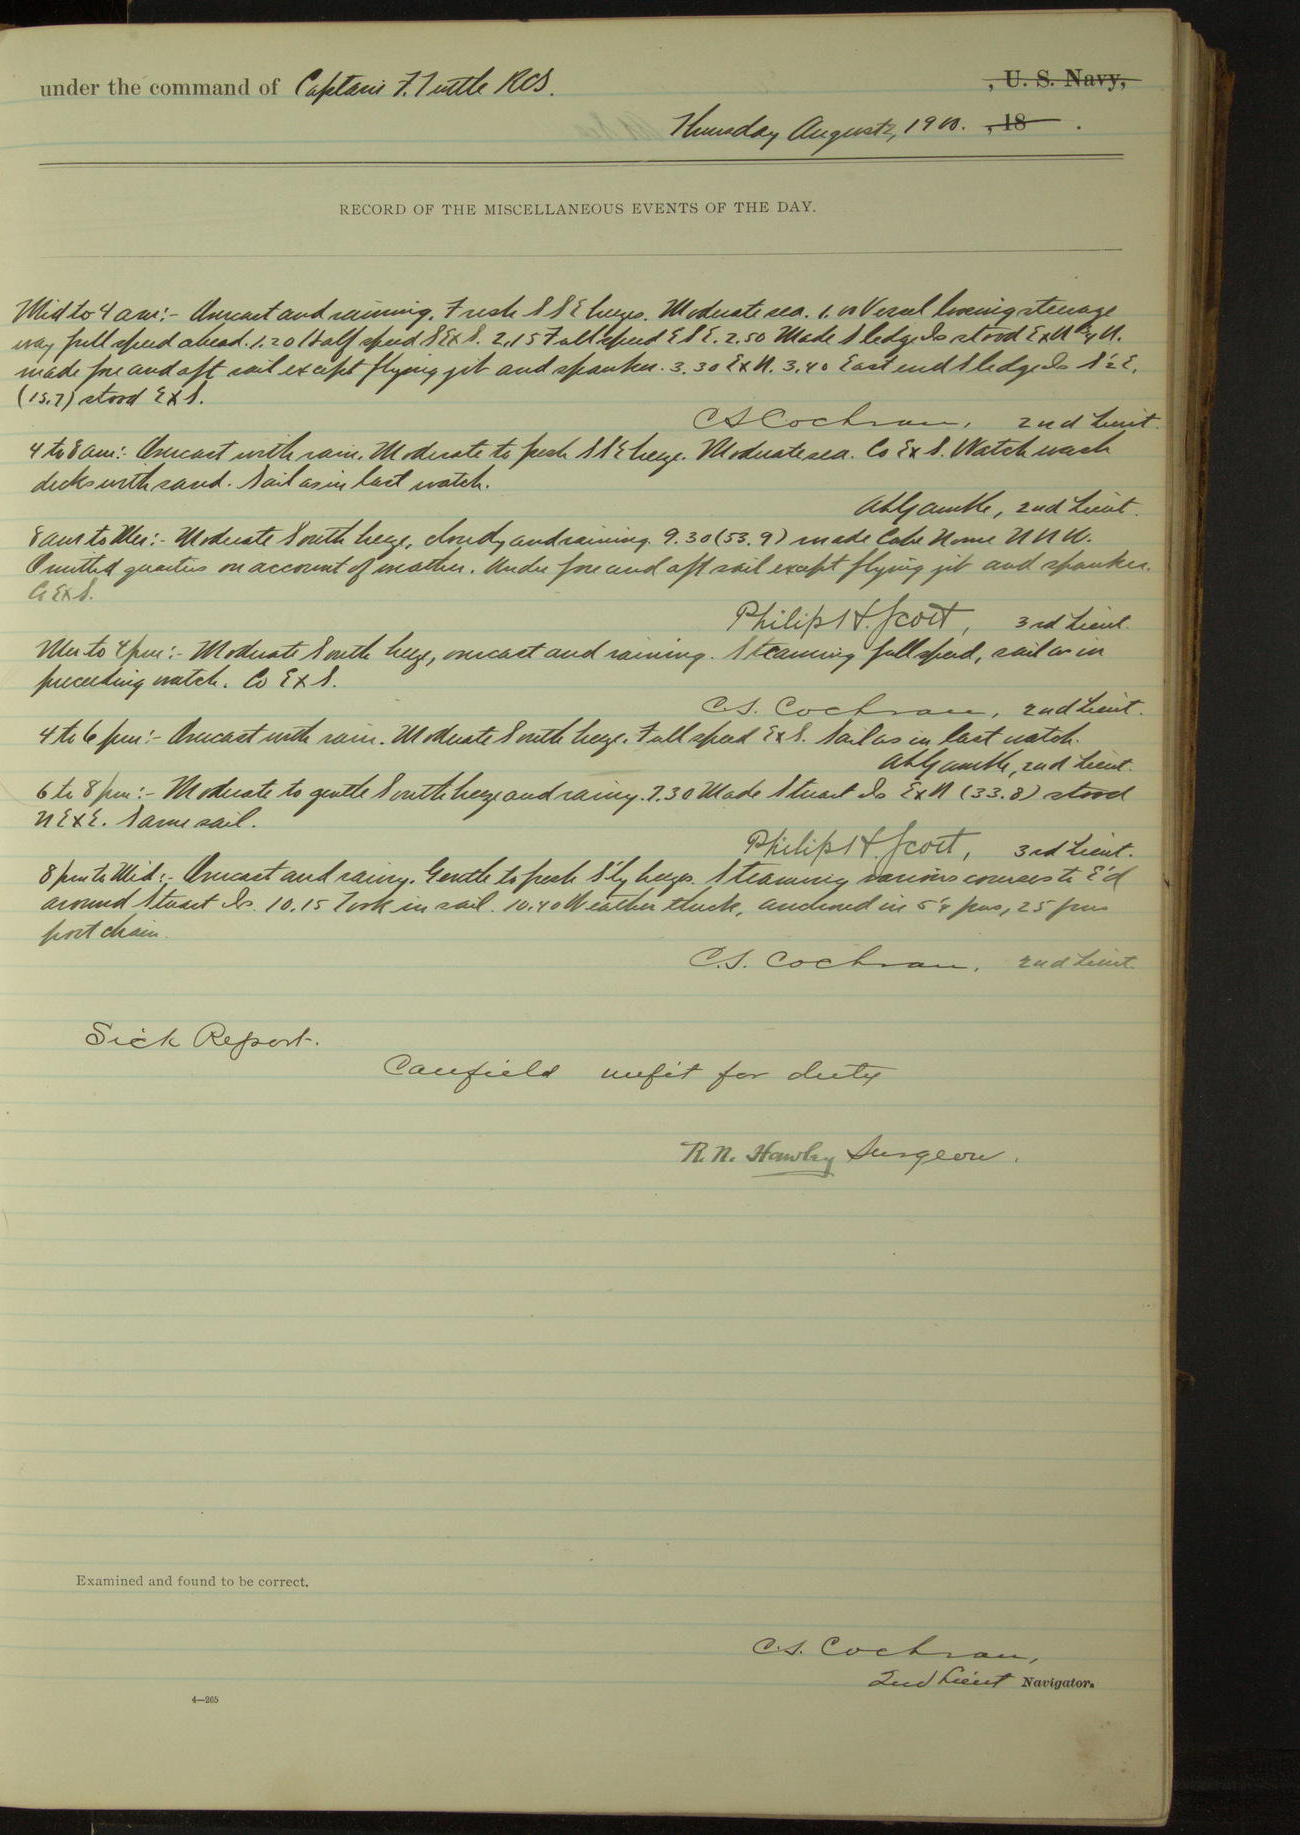 under the command of Captain F. Tuttle RCS. , U. S. Navy,
Thursday August 2, 1900. , 18 .
RECORD OF THE MISCELLANEOUS EVENTS OF THE DAY.
Mid to 4 am:- Overcast and raining. Fresh SSE breeze. Moderate sea. 1.00 Vessel loosing steerage
way full speed ahead. 1.20 Half speed SExS. 2.15 Full speed ESE. 2.50 Made Sledge Is stood ExN N.
made fore and aft sail except flying jib and spanker. 3.30 ExN. 3.40 East end Sledge Is S½E.
(15.7) stood ExS.
C S Cochran, 2nd Lieut.
4 to 8 am:- Overcast with rain. Moderate to fresh SSE breeze. Moderate sea. Co ExS. Watch wash
decks with sand. Sail as in last watch.
A H Gamble, 2nd Lieut.
8 am to Mer:- Moderate South breeze, cloudy and raining. 9.30 (53.9) made Cape Nome NNW.
Omitted quarters on account of weather. Under fore and aft sail except flying jib and spanker.
Co ExS.
Philip H. Scott, 3rd Lieut.
Mer to 4 pm:- Moderate South breeze, overcast and raining. Steaming full speed, sail as in
preceeding watch. Co ExS.
C.S. Cochran, 2nd Lieut.
4 to 6 pm:- Overcast with rain. Moderate South breeze. Full speed ExS. Sail as in last watch.
A H Gamble, 2nd Lieut.
6 to 8 pm:- Moderate to gentle South breeze and rainy. 7.30 Made Stuart Is ExN (33.8) stood
NExE. Same sail.
Philip H. Scott, 3rd Lieut.
8 pm to Mid:- Overcast and rainy. Gentle to fresh S'ly breeze. Steaming various courses to E'd
around Stuart Is. 10.15 Took in sail. 10.40 Weather thick, anchored in 5¼ fms, 25 fms
port chain.
C.S. Cochran, 2nd Lieut.
Sick Report.
Canfield unfit for duty
R.N. Hawley Surgeon.
Examined and found to be correct.
C.S. Cochran,
2nd Lieut Navigator.
4—265